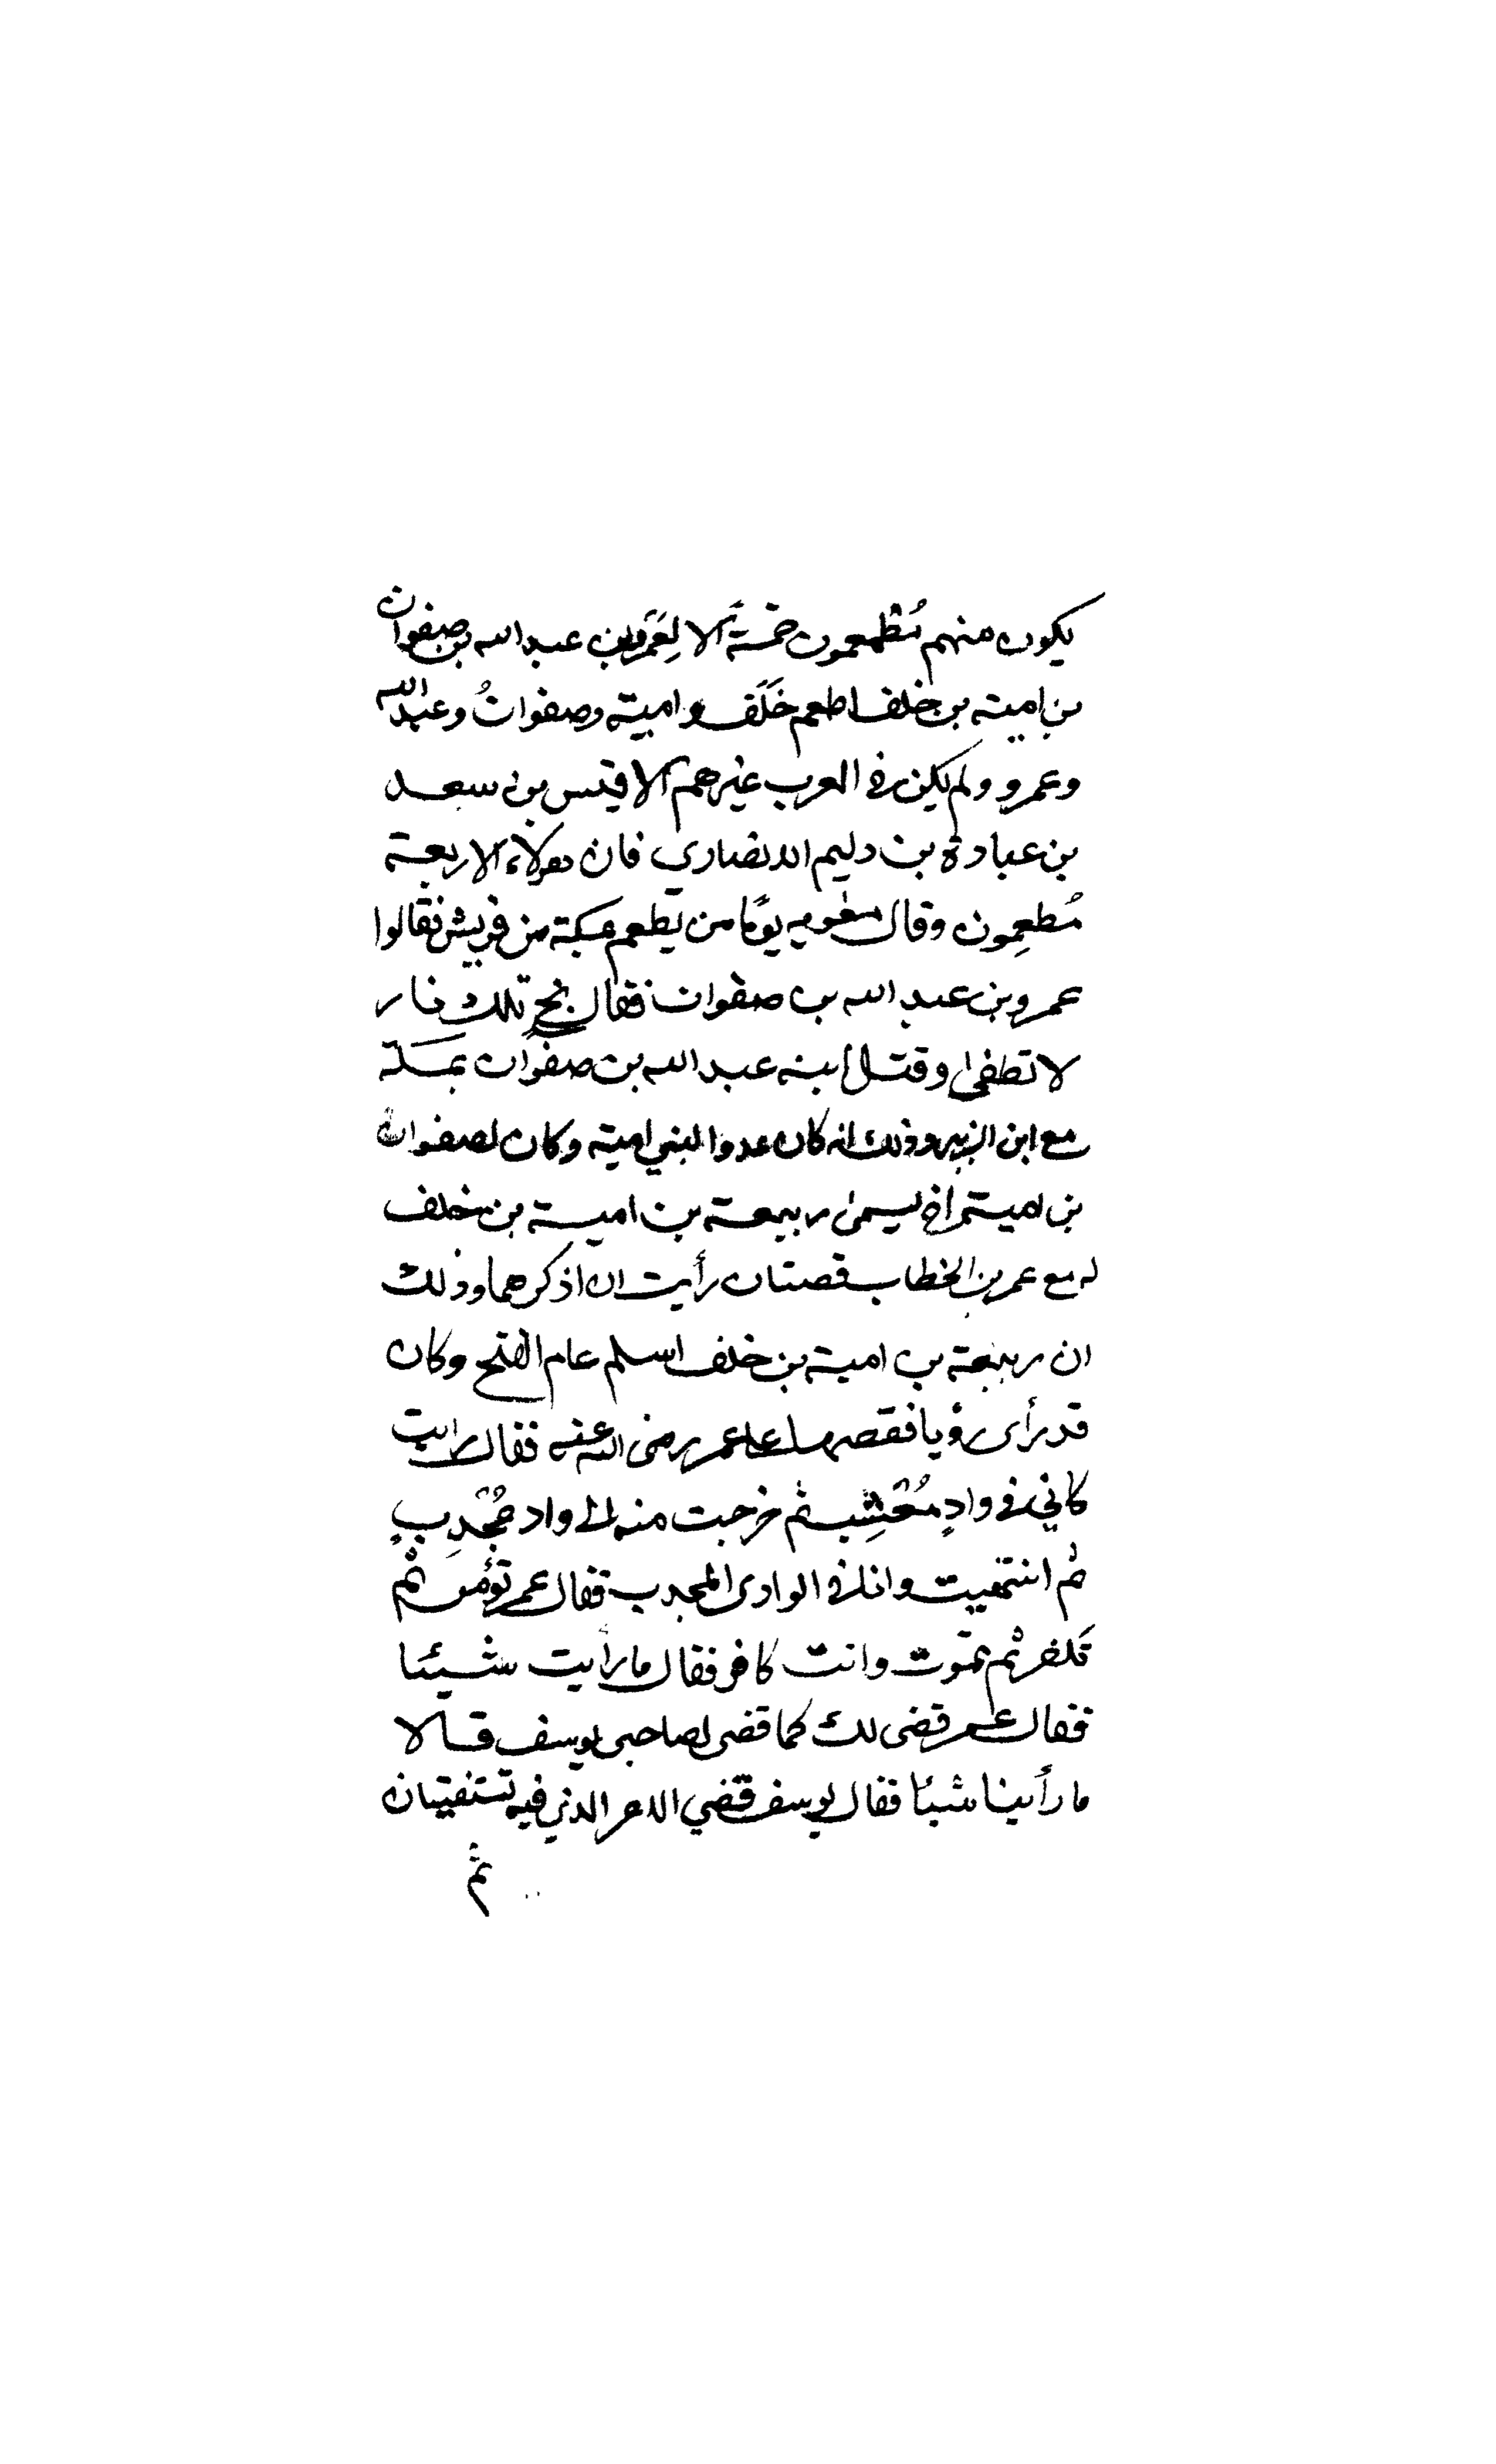 يكون منهم مُطعمون خمسة الا لِعَمْرو بن عبد الله بن صفوان
بن امية بن خلف اطعم خَلَف وامية وصفوانُ وعبد الله
وعمرو ولم يكن في العرب غيرهم الا قيس بن سعد
بن عبادة بن دليم الانصاري فان هولاء الاربعة
مُطعِمون وقال معوية يومًا من يطعم بمكة من قريش فقالوا
عمرو بن عبد الله بن صفوان فقال بخٍ تلك نار
لا تطفى وقتل ابنه عبد الله بن صفوان بمكة
مع ابن الزبير وذلك انه كان عدوا لبني امية وكان لصفوان
بن امية اخ يسمى ربيعة بن امية بن خلف
له مع عمر بن الخطاب قصتان رأيت ان اذكرهما وذلك
ان ربيعة بن امية بن خلف اسلم عام الفتح وكان
قد رأى رؤيا فقصها على عمر رضى الله عنه فقال رايت
كاني في وادٍ مُعْشِب ثم خرجت منه الى واد مُجْدِبٍ
ثم انتهيت وانا في الوادى المجدب فقال عمر تؤمن ثم
تكفر ثم تموت وانت كافر فقال ما رأيت شيئا
فقال عمر قضى لك كما قضى لصاحبى يوسف قالا
ما رأينا شيئا فقال يوسف قضي الامر الذي فيه تستفتيان
ثم